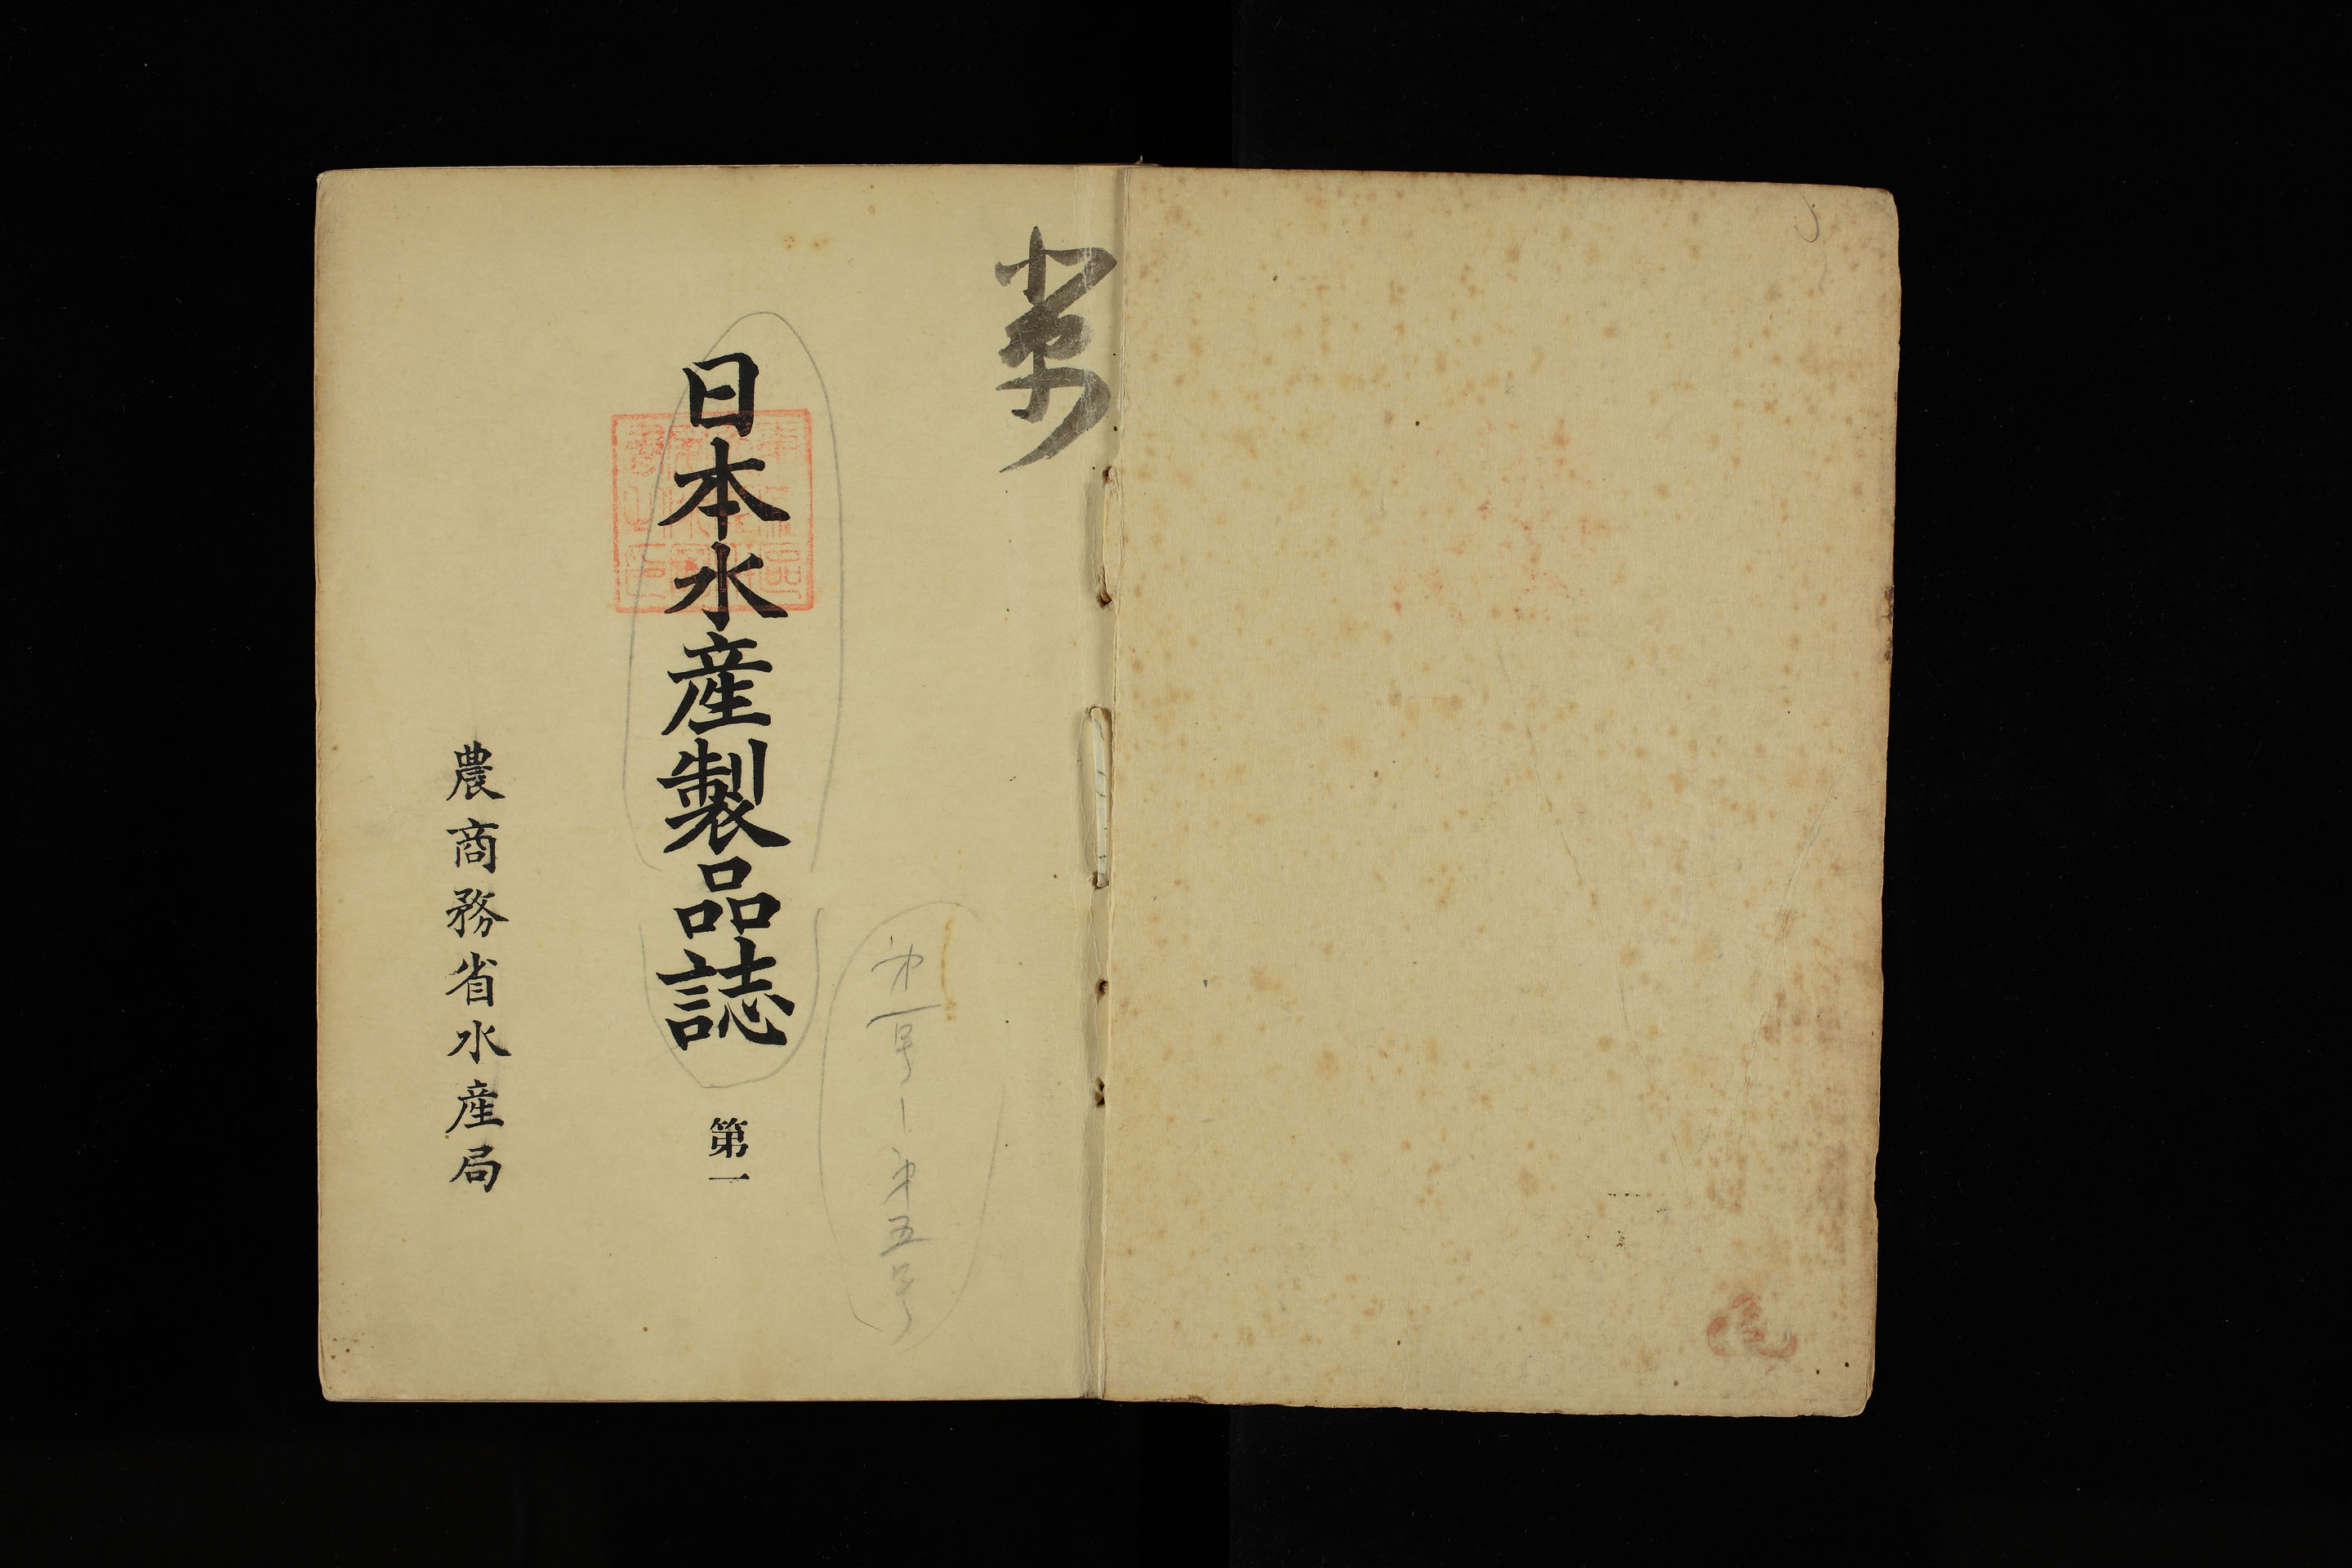 日本水産製品誌 第一
農商務省水産局
第一号ー第五号